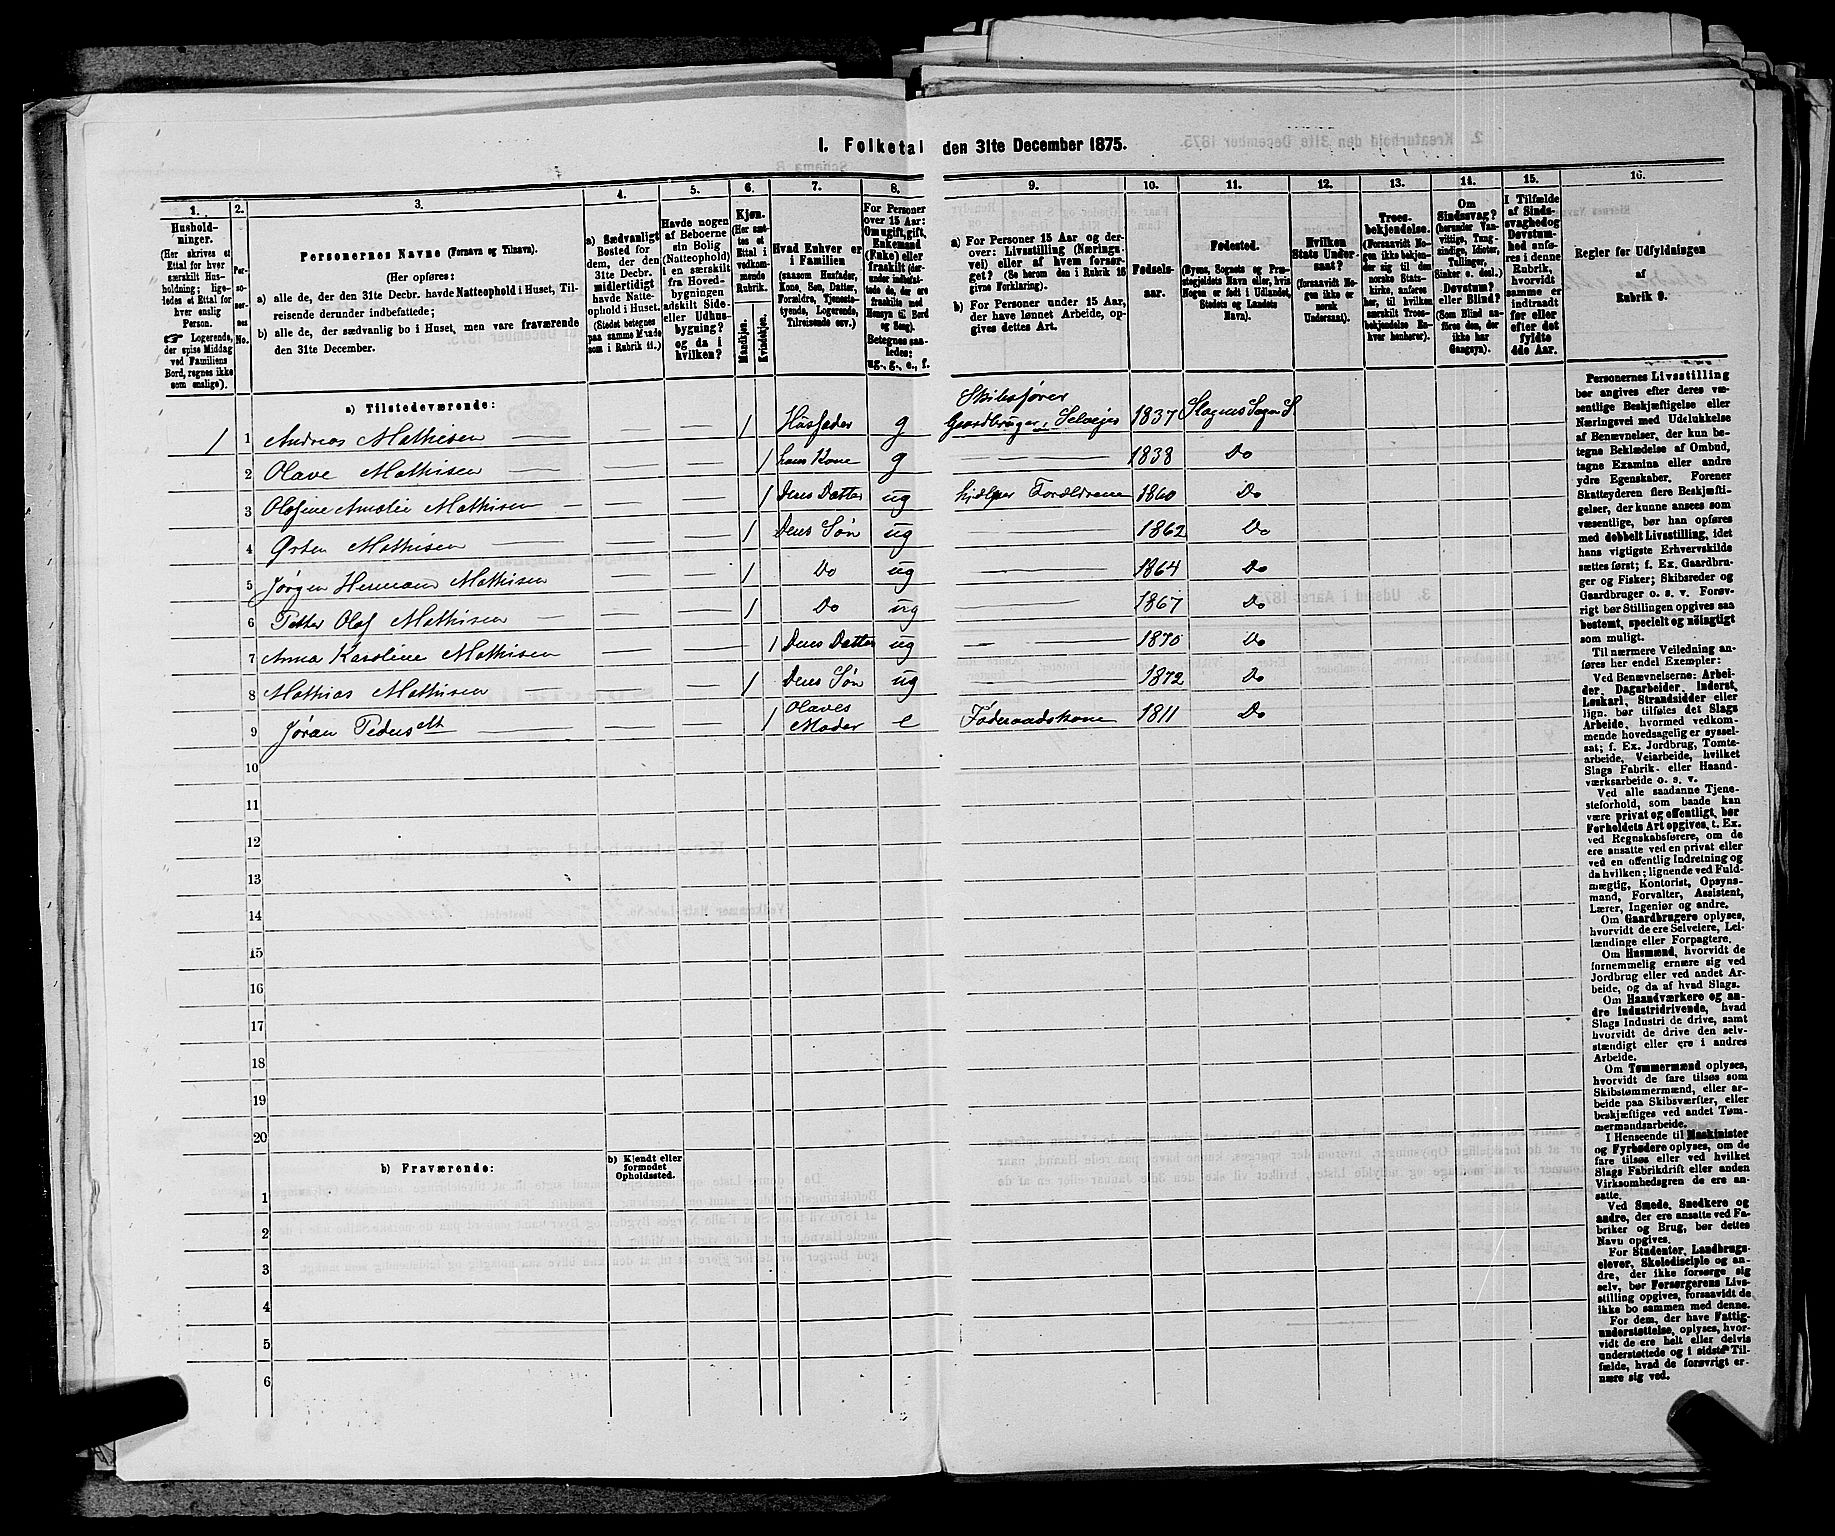 I. Folketal den 31te December 1875.
1. 2. 3. 4. 5. 6. 7. 8. 9. 10. 11. 12. 13. 14. 15. 16.
Hushold-
ninger.
(Her skrives et
Ettal for hver
særskilt Hus-
holdning; lige-
ledes et Ettal for
hver enslig
Person.
☛ Logerende,
der spise Middag
ved Familiens
Bord, regnes ikke
som enslige).
Per-
so-
ner-
nes
No.
Personernes Navne (Fornavn og Tilnavn).
(Her opføres:
a) alle de, der den 31te Decbr. havde Natteophold i Huset, Til-
reisende derunder indbefattede;
b) alle de, der sædvanlig bo i Huset, men vare fraværende
den 31te December.
a) Sædvanligt
Bosted for
dem, der den
31te Decbr.
midlertidigt
havde Natte-
ophold i Huset.
(Stedet betegnes
paa samme Maade
som i Rubrik 11.)
Havde nogen
af Beboerne
sin Bolig
(Natteophold)
i en særskilt
fra Hoved-
bygningen
adskilt Side-
eller Udhus-
bygning?
og da i
hvilken?
Kjøn.
(Her sæt-
tes et
Ettal i
vedkom-
mende
Rubrik.
Mandkjøn.
Kvindekjøn.
Hvad Enhver er
i Familien
(saasom Husfader,
Kone, Søn, Datter,
Forældre, Tjeneste-
tyende, Logerende,
Tilreisende osv.)
For Personer
over 15 Aar:
Om ugift, gift,
Enkemand
(Enke) eller
fraskilt (der-
under indbefat-
tede de, der ere
fraskilte med
Hensyn til Bord
og Seng).
Betegnes saa-
ledes:
ug., g., e., f.
a) For Personer 15 Aar og der-
over: Livsstilling (Nærings-
vei) eller af hvem forsør-
get? (Se herom den i Rubrik 16
givne Forklaring).
b) For Personer under 15 Aar,
der have lønnet Arbeide, op-
gives dettes Art.
Fødsels-
aar.
Fødested.
(Byens, Sognets og Præ-
stegjeldets Navn eller, hvis
Nogen er født i Udlandet,
Stedets og Landets
Navn).
Hvilken
Stats Under-
saat?
(forsaavidt No-
gen ikke er
norsk
Undersaat).
Troes-
bekjendelse.
(Forsaavidt No-
gen ikke bekjen-
der sig til den
norske Stats-
kirke, anføres
her, til hvilken
særskilt Troes-
bekjendelse En-
hver henhører).
Om
Sindssvag?
(herunder Van-
vittige, Tung-
sindige, Idioter,
Tullinger,
Sinker o. desl.)
Døvstum?
eller Blind?
(Som Blind an-
føres den, der
ikke har
Gangsyn).
I Tilfælde
af Sinds-
svaghed og
Døvstum-
hed anfø-
res i denne
Rubrik,
hvorvidt
samme er
indtraadt
før eller
efter det
fyldte
4de Aar.
Regler for Udfyldningen
af
Rubrik 9.
a) Tilstedeværende:
1 1 Andreas Mathisen 1 Husfader g Skibsfører Gaardbruger, Selveier 1837 Slagens Sogn S.
2 Olave Mathisen 1 hans Kone g 1838 Do
3 Olefine Amalie Mathisen 1 Deres Datter ug hjelper Forældrene 1860 Do
4 Ørsten Mathisen 1 Deres Søn ug 1862 Do
5 Jørgen Herman Mathisen 1 Do ug 1864 Do
6 Petter Olaf Mathisen 1 Do ug 1867 Do
7 Anna Karoline Mathisen 1 Deres Datter ug 1870 Do
8 Mathias Mathisen 1 Deres Søn ug 1872 Do
9 Jøran Pedersdtt 1 Olaves Moder e Føderaadskone 1811 Do
10
11
12
13
14
15
16
17
18
19
20
b) Fraværende:
b) Kjendt eller
formodet
Opholdssted.
1
2
3
4
5
6
Personernes Livsstilling
bør angives efter deres væ-
sentlige Beskjæftigelse eller
Næringsvei med Udelukkelse
af Benævnelser, der kun be-
tegne Beklædelse af Ombud,
tagne Examina eller andre
ydre Egenskaber. Forener
Skatteyderen flere Beskjæfti-
gelser, der kunne ansees som
væsentlige, bør han opføres
med dobbelt Livsstilling, idet
hans vigtigste Erhvervskilde
sættes først; f. Ex. Gaardbru-
ger og Fisker; Skibsreder og
Gaardbruger o. s. v. Forøv-
rigt bør Stillingen opgives saa
bestemt, specielt og nøiagtigt
som muligt.
Til nærmere Veiledning an-
føres her endel Exempler:
Ved Benævnelserne: Arbei-
der, Dagarbeider, Inderst,
Løskarl, Strandsidder eller
lign. bør tilføles det Slags
Arbeide, hvormed vedkom-
mende hovedsagelig er syssel-
sat; f. Ex. Jordbrug, Tomte-
arbeide, Veiarbeide, hvilket
Slags Fabrik- eller Haand-
værksarbeide o. s. v.
Ved alle saadanne Tjene-
steforhold, som baade kan
være privat og offentligt, bør
Forholdets Art opgives, t. Ex.
ved Regnskabsførere, om de
ere ansatte ved en privat eller
ved en offentlig Indretning og
da hvilken; lignende ved Fuld-
mægtig, Kontorist, Opsyns-
mand, Forvalter, Assistent,
Lærer, Ingeniør og andre.
Om Gaardbrugere oplyses,
hvorvidt de ere Selveiere, Lei-
lændinge eller Forpagtere.
Om Husmænd, hvorvidt de
fornemmelig ernære sig ved
Jordbrug eller ved andet Ar-
beide, og da af hvad Slags.
Om Haandværkere og an-
dre Industridrivende, hvad
Slags Industri de drive, samt
hvorvidt de drive den selv-
stændigt eller ere i andres
Arbeide.
Om Tømmermænd oplyses,
hvorvidt de fare tilsøs som
Skibstømmermænd, eller ar-
beide paa Skibsværfter, eller
beskjæftiges ved andet Tøm-
mermandsarbeide.
I Henseende til Maskinister
og Fyrbødere oplyses, om de
fare tilsøs eller ved hvilket
Slags Fabrikdrift eller anden
Virksomhedsgren de ere an-
satte.
Ved Smede, Snedkere og
andre, der ere ansatte ved Fa-
briker og Brug, bør dettes
Navn opgives.
For Studenter, Landbrugs-
elever, Skoledisciple og an-
dre, der ikke forsørge sig
selv, bør Forsørgerens Livs-
stilling opgives, forsaavidt de
ikke bo sammen med denne.
For dem, der have Fattig-
understøttelse, oplyses, hvor-
vidt de ere helt eller delvis
understøttede og i sidste Til-
fælde, hvad de forøvrigt er-
nære sig ved.